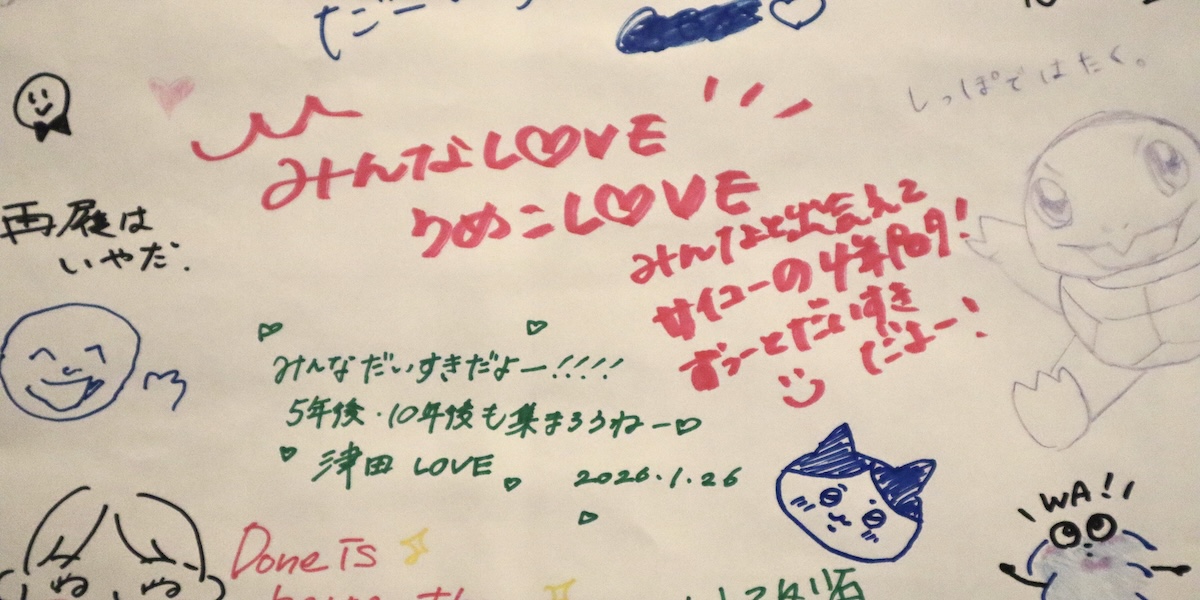 しっぽではたく。
みんなLOVE
うめこLOVE
みんなと出会えて
サイコーの4年間!
ずっーとだいすき
だよー!
再履は
いやだ.
みんなだいすきだよー!!!!!
5年後・10年後も集まろうねー
津田 LOVE
2026.1.26
WA!
Done is